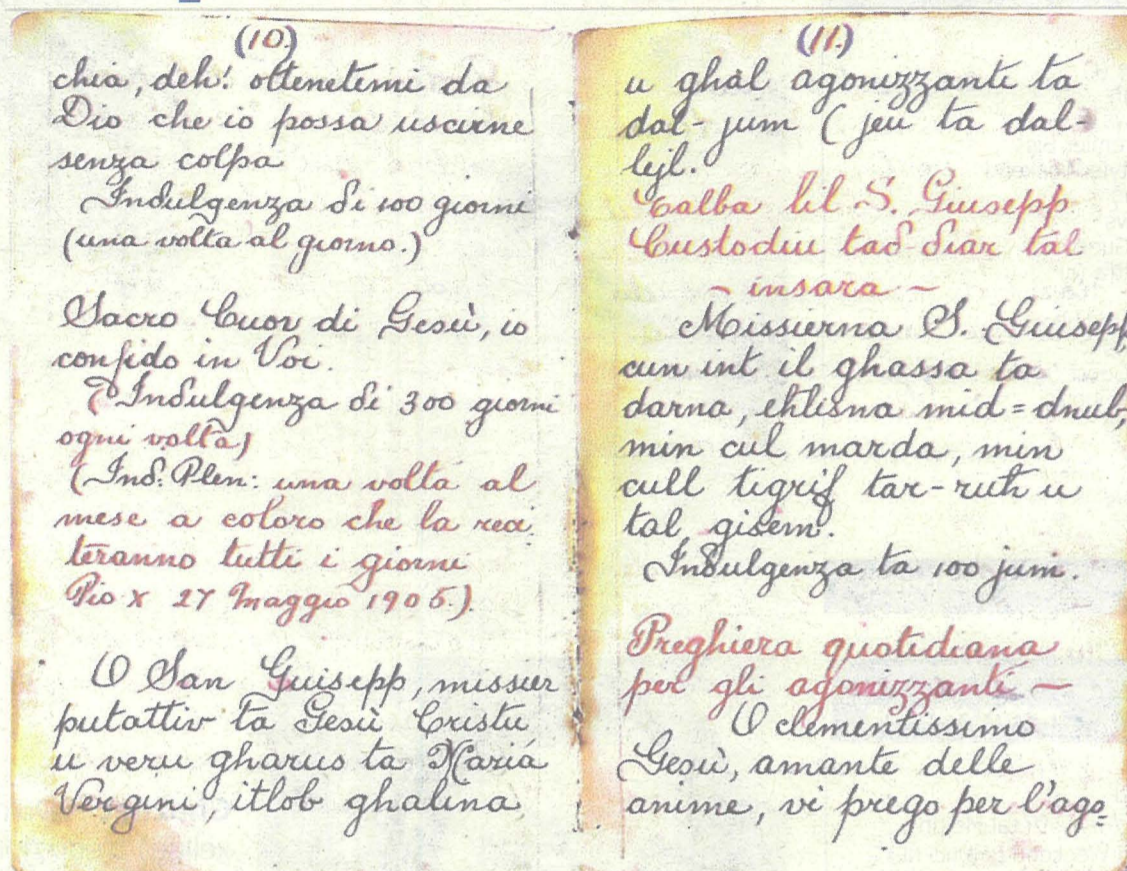 (10.)
chia, deh! ottenetemi da
Dio che io possa uscirne
senza colpa
Indulgenza di 100 giorni
(una volta al giorno.)
Sacro Cuor di Gesù, io
confido in Voi.
(Indulgenza di 300 giorni
ogni volta)
(Ind: Plen: una volta al
mese a coloro che la reci
teranno tutti i giorni
Pio X 27 Maggio 1905.)
O San Guisepp, missier
putattiv ta Gesù Cristu
u veru gharus ta Maria
Vergini, itlob ghalina
(11.)
u ghal agonizzanti ta
dal-jum (jeu ta dal-
lejl.
Talba lil S. Giusepp
Custodiu tad-diar tal
- insara -
Missierna S. Giusepp,
cun int il ghassa ta
darna, ehlisna mid=dnub,
min cul marda, min
cull tigrif tar-ruh u
tal gisem.
Indulgenza ta 100 jum.
Preghiera quotidiana
per gli agonizzanti -
O clementissimo
Gesù, amante delle
anime, vi prego per l'ago=